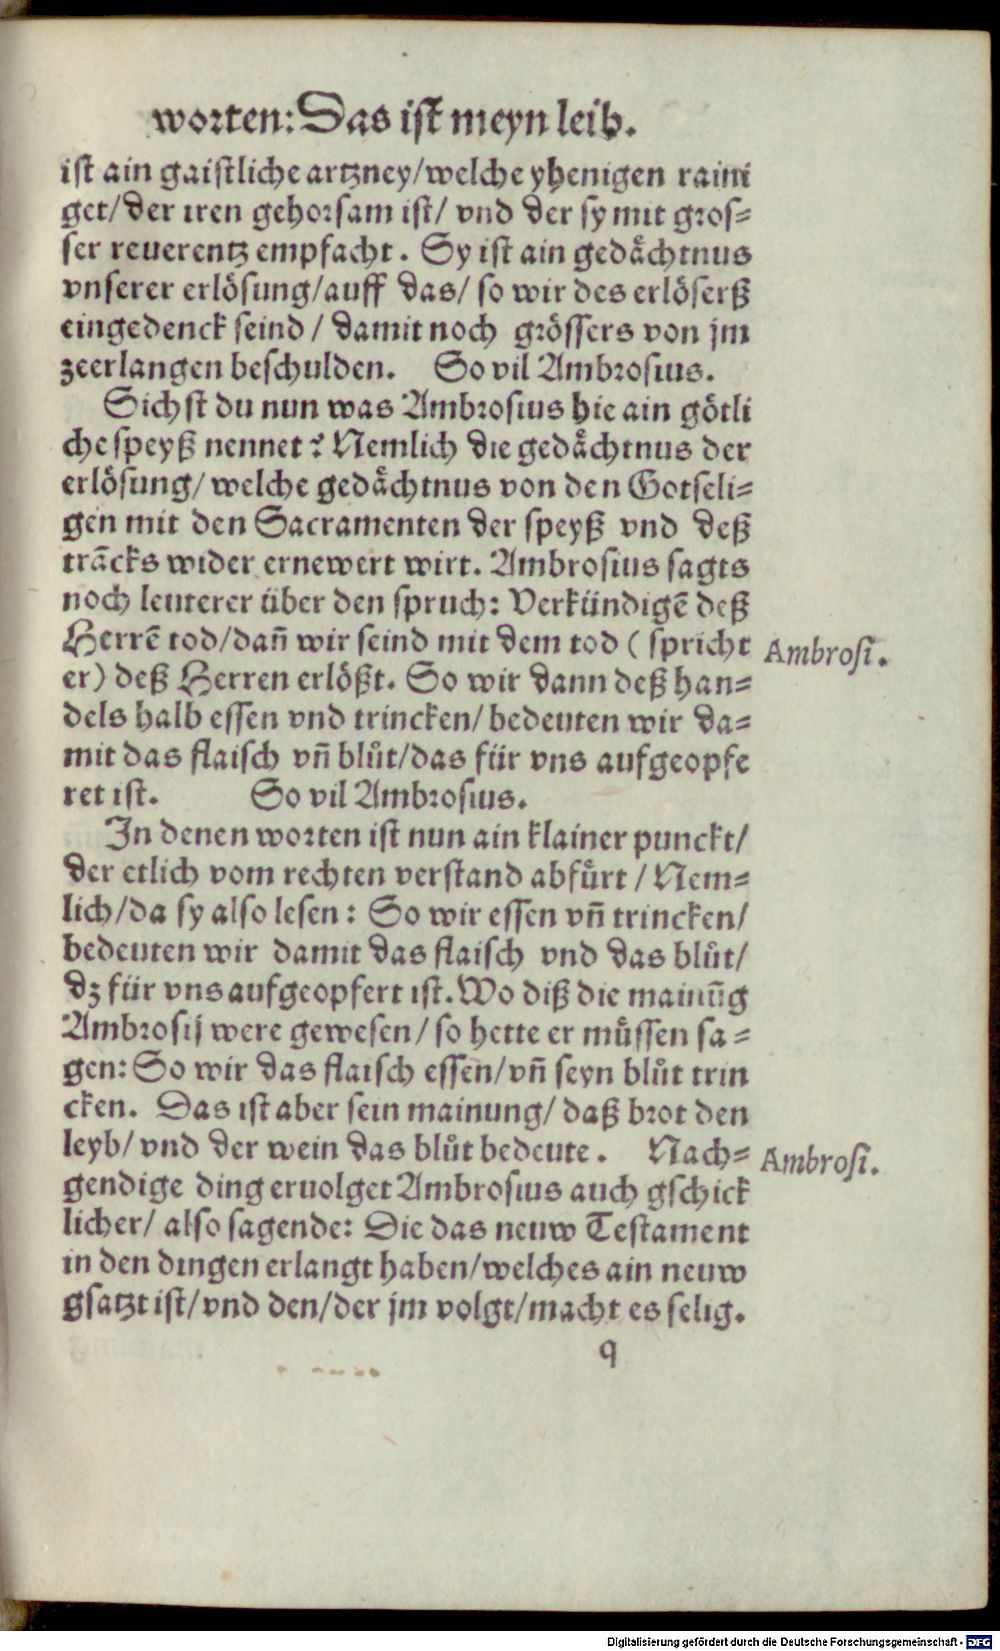 worten: Das ist meyn leib.
ist ain gaistliche artzney/welche yhenigen raini
get/der iren gehorsam ist/ vnd der sy mit gros-
ser reuerentz empfacht. Sy ist ain gedåchtnus
vnserer erlösung/auff das/ so wir des erlöserß
eingedenck seind/ damit noch grössers von jm
zeerlangen beschulden. So vil Ambrosius.
Sichst du nun was Ambrosius hie ain götli
che speyß nennet? Nemlich die gedåchtnus der
erlösung/ welche gedåchtnus von den Gotseli-
gen mit den Sacramenten der speyß vnd deß
trācks wider ernewert wirt. Ambrosius sagts
noch leuterer über den spruch: Verkündigē deß
Herrē tod/dañ wir seind mit dem tod (spricht
er) deß Herren erlößt. So wir dann deß han-
dels halb essen vnd trincken/ bedeuten wir da-
mit das flaisch vñ blůt/das für vns aufgeopfe
ret ist. So vil Ambrosius.
In denen worten ist nun ain klainer punckt/
der etlich vom rechten verstand abfůrt/ Nem-
lich/da sy also lesen: So wir essen vñ trincken/
bedeuten wir damit das flaisch vnd das blůt/
dz für vns aufgeopfert ist. Wo diß die mainūg
Ambrosij were gewesen/ so hette er můssen sa-
gen: So wir das flaisch essen/vñ seyn blůt trin
cken. Das ist aber sein mainung/ daß brot den
leyb/ vnd der wein das blůt bedeute. Nach-
gendige ding eruolget Ambrosius auch gschick
licher/ also sagende: Die das neuw Testament
in den dingen erlangt haben/welches ain neuw
gsatzt ist/vnd den/der jm volgt/macht es selig.
q
Ambrosi.
Ambrosi.
Digitalisierung gefördert durch die Deutsche Forschungsgemeinschaft - DFG